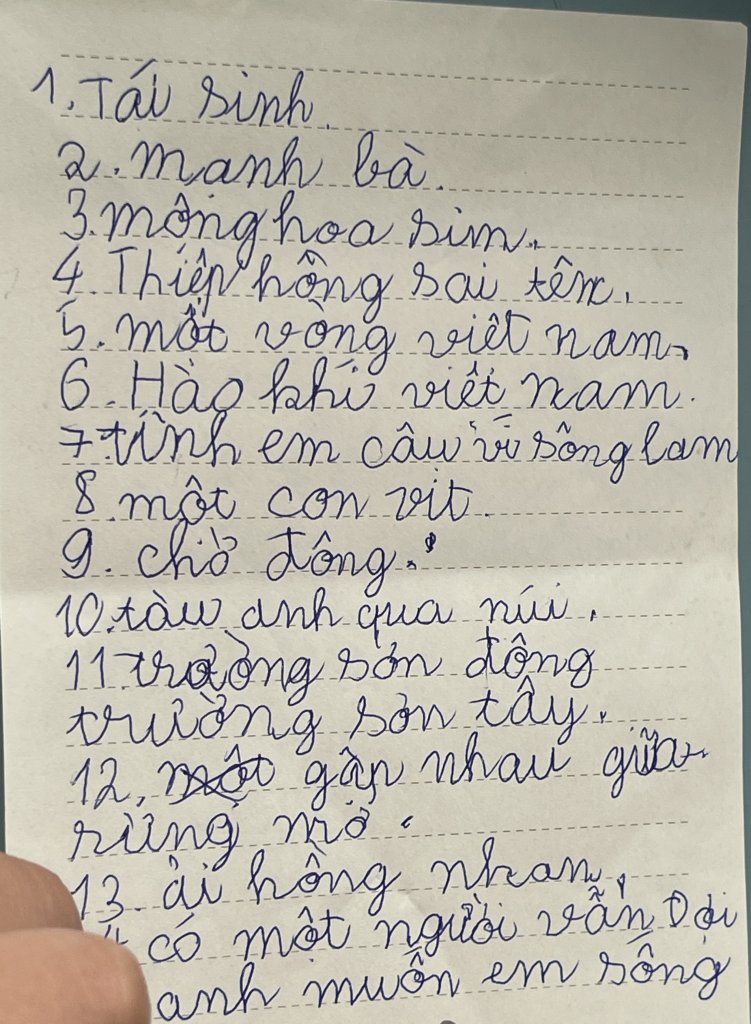 1. Tái sinh.
2. mạnh bà.
3. mộng hoa sim.
4. Thiệp hồng sai tên.
5. một vòng việt nam.
6. Hào khí việt nam.
7 tình em câu ví sông lam
8. một con vịt.
9. chờ đông.
10. tàu anh qua núi.
11 trường sơn đông
trường sơn tây.
12, gặp nhau giữa
rừng mơ.
13. ải hồng nhan.
có một người vẫn Đợi
anh muốn em sống